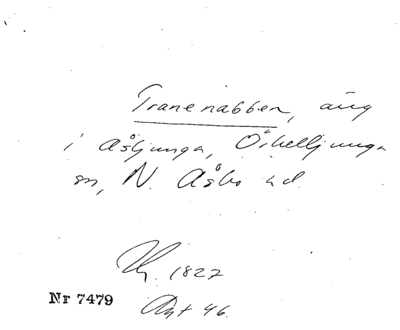 Tranenabben, äng
i Åsljunga, Örkelljunga
sn, N. Åsbo hd.
Hy. 1827
Nr 7479
Akt 46.